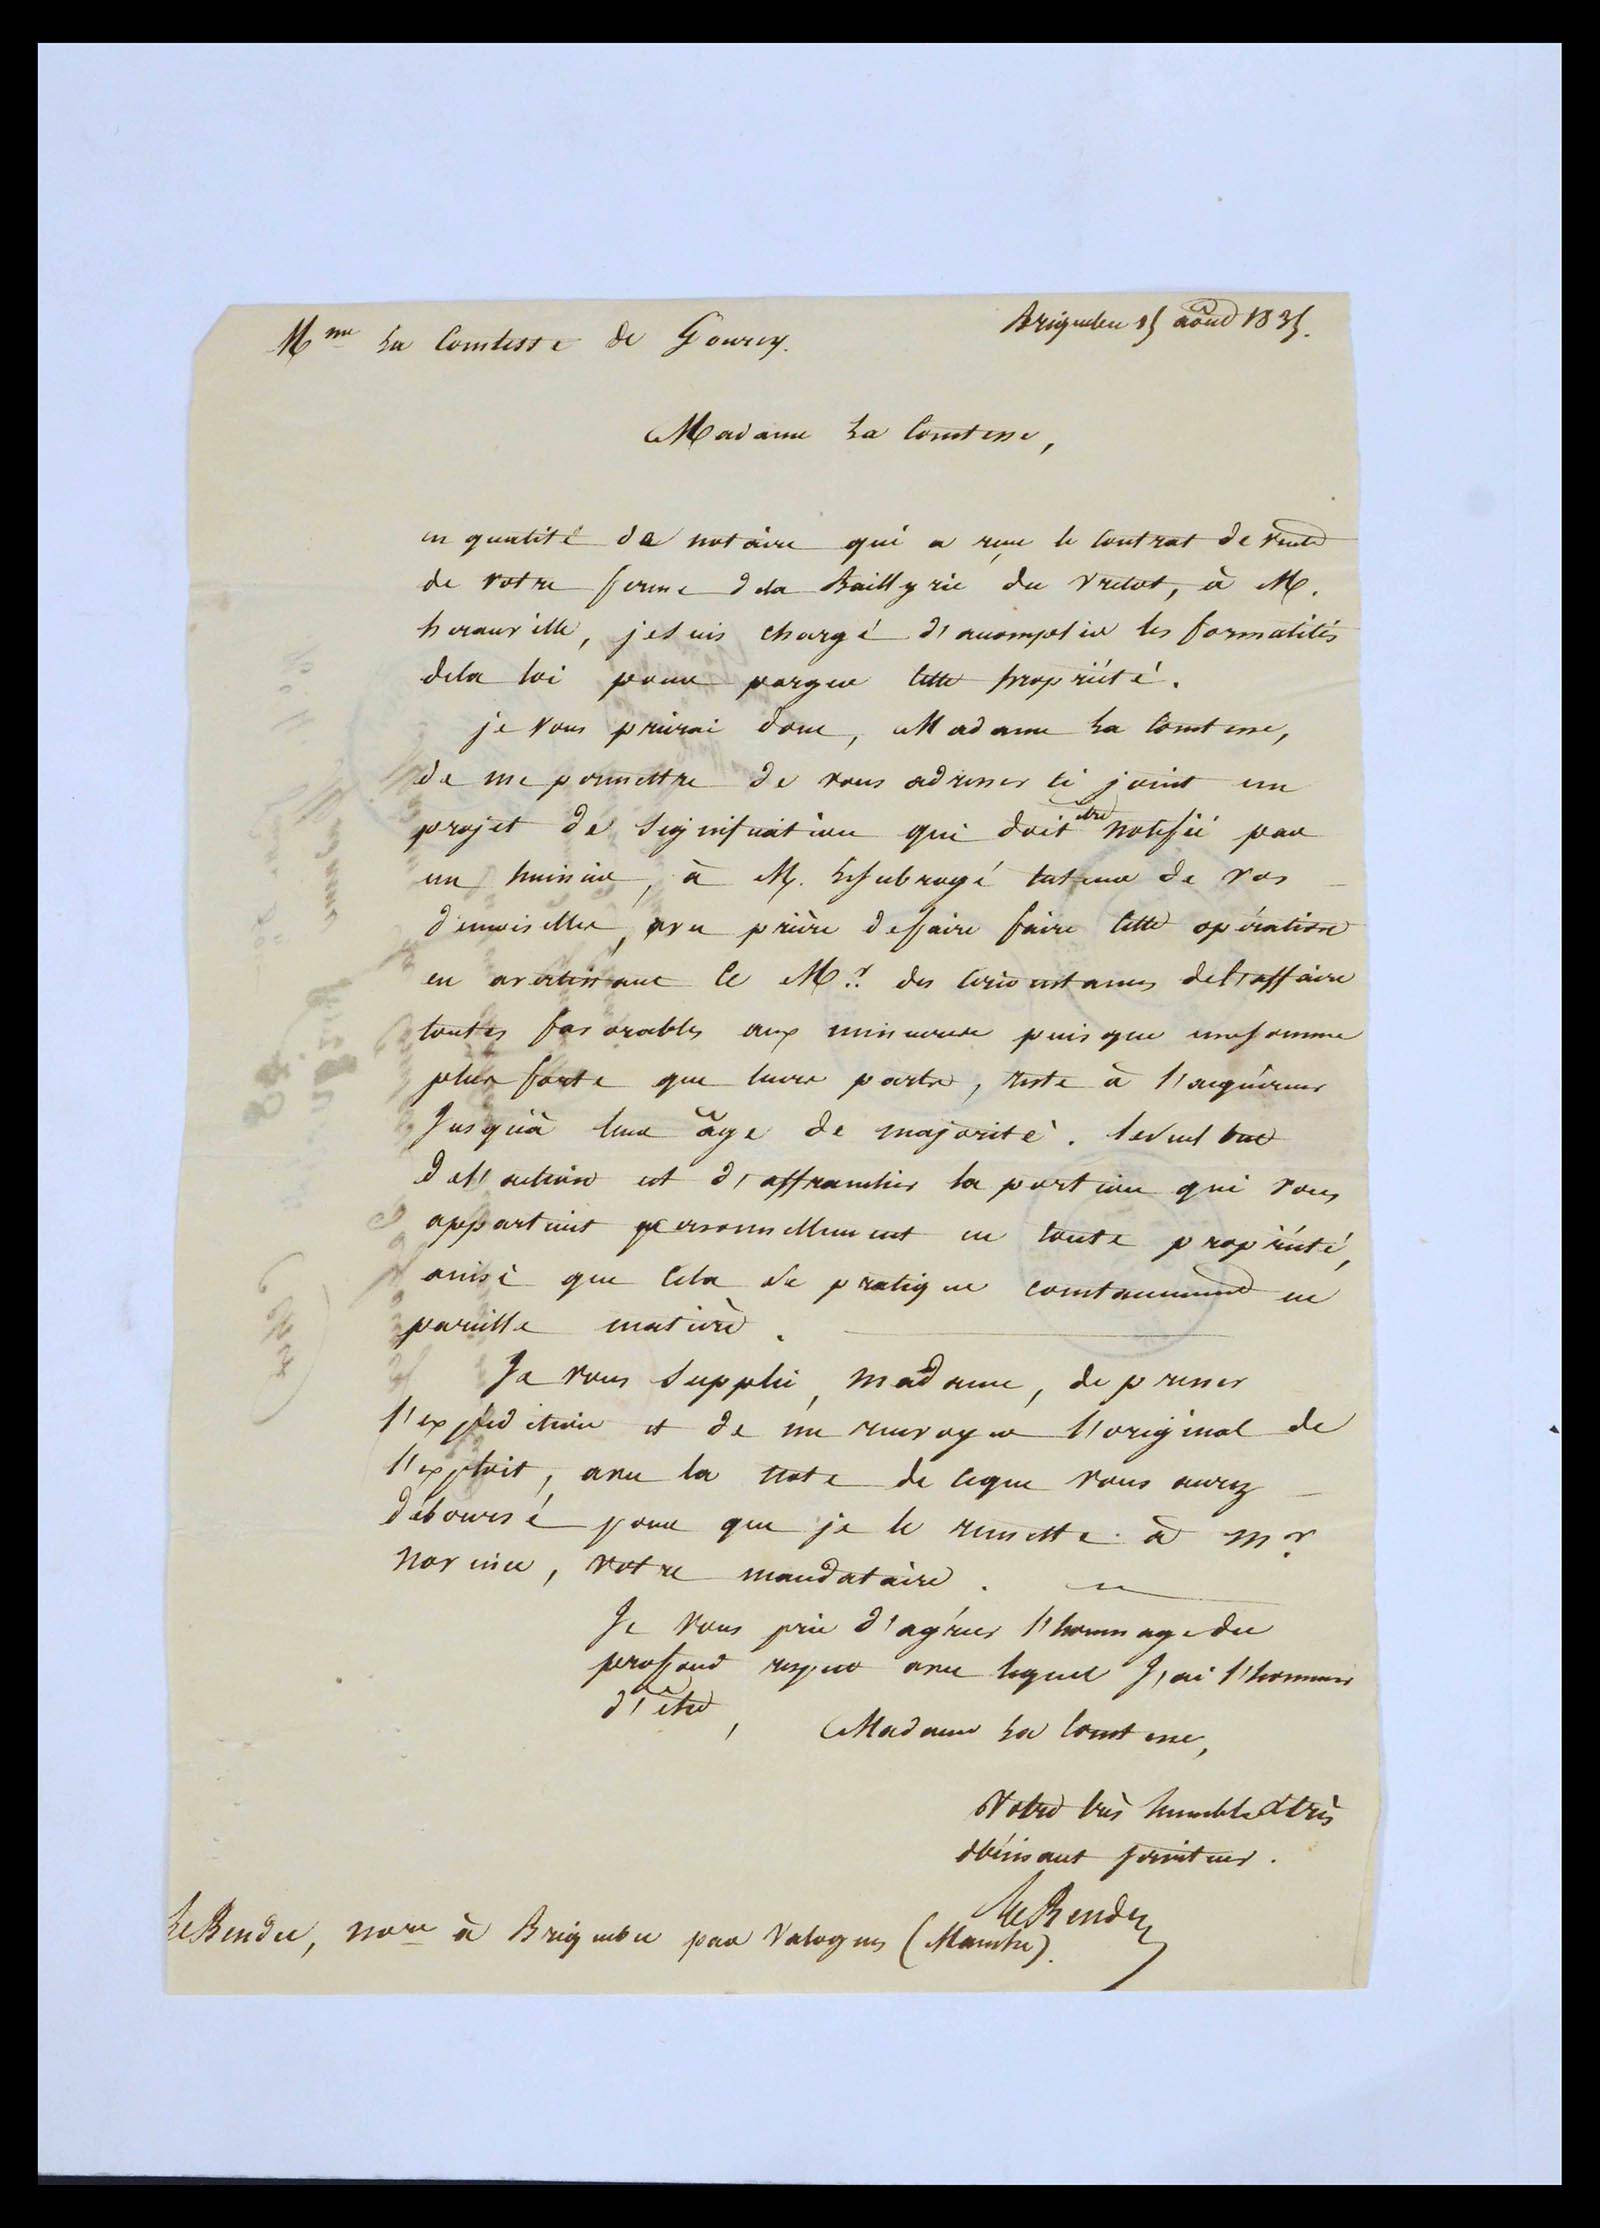 Mme La Comtesse de Gourcy.
Briquebec 15 août 1835.
Madame La Comtesse,
en qualité de notaire qui a reçu le contrat de vente
de votre ferme dela Baillyrie du Vretot, à M.
herauville, jesuis chargé d'accomplir les formalités
dela loi pour purger cette propriété.
je vous prierai donc, Madame La Comtesse,
de me permettre de vous adresser ci joint un
projet de signification qui doit être notifié par
un huissier, à M. Lesubrogé tuteur de vos
demoiselles, avec prière defaire faire cette opération
en avertissant ce Mr. des circonstances del'affaire
toutes favorables aux mineures puisque unesomme
plus forte que leurs parts, reste à l'acquéreur
Jusqu'à leur âge de majorité. leseul but
del'action est d'affranchir la portion qui vous
appartient personnellement en toute propriété,
ainsi que cela se pratique constamment en
pareille matière.
Je vous supplie, madame, de presser
l'expédition et de me renvoyer l'original de
l'exploit, avec la note de ceque vous aurez
déboursé pour que je le remette à mr
votre mandataire.
Je vous prie d'agréer l'hommage du
profond respect avec lequel J'ai l'honneur
d'être,
Madame La Comtesse,
Votre très humble et très
obéissant serviteur.
LeBendey
LeBendey, nore à Briquebec par Valognes (Manche).